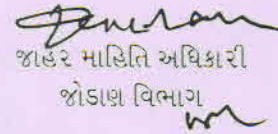 જાહેર માહિતિ અધિકારી
જોડાણ વિભાગ